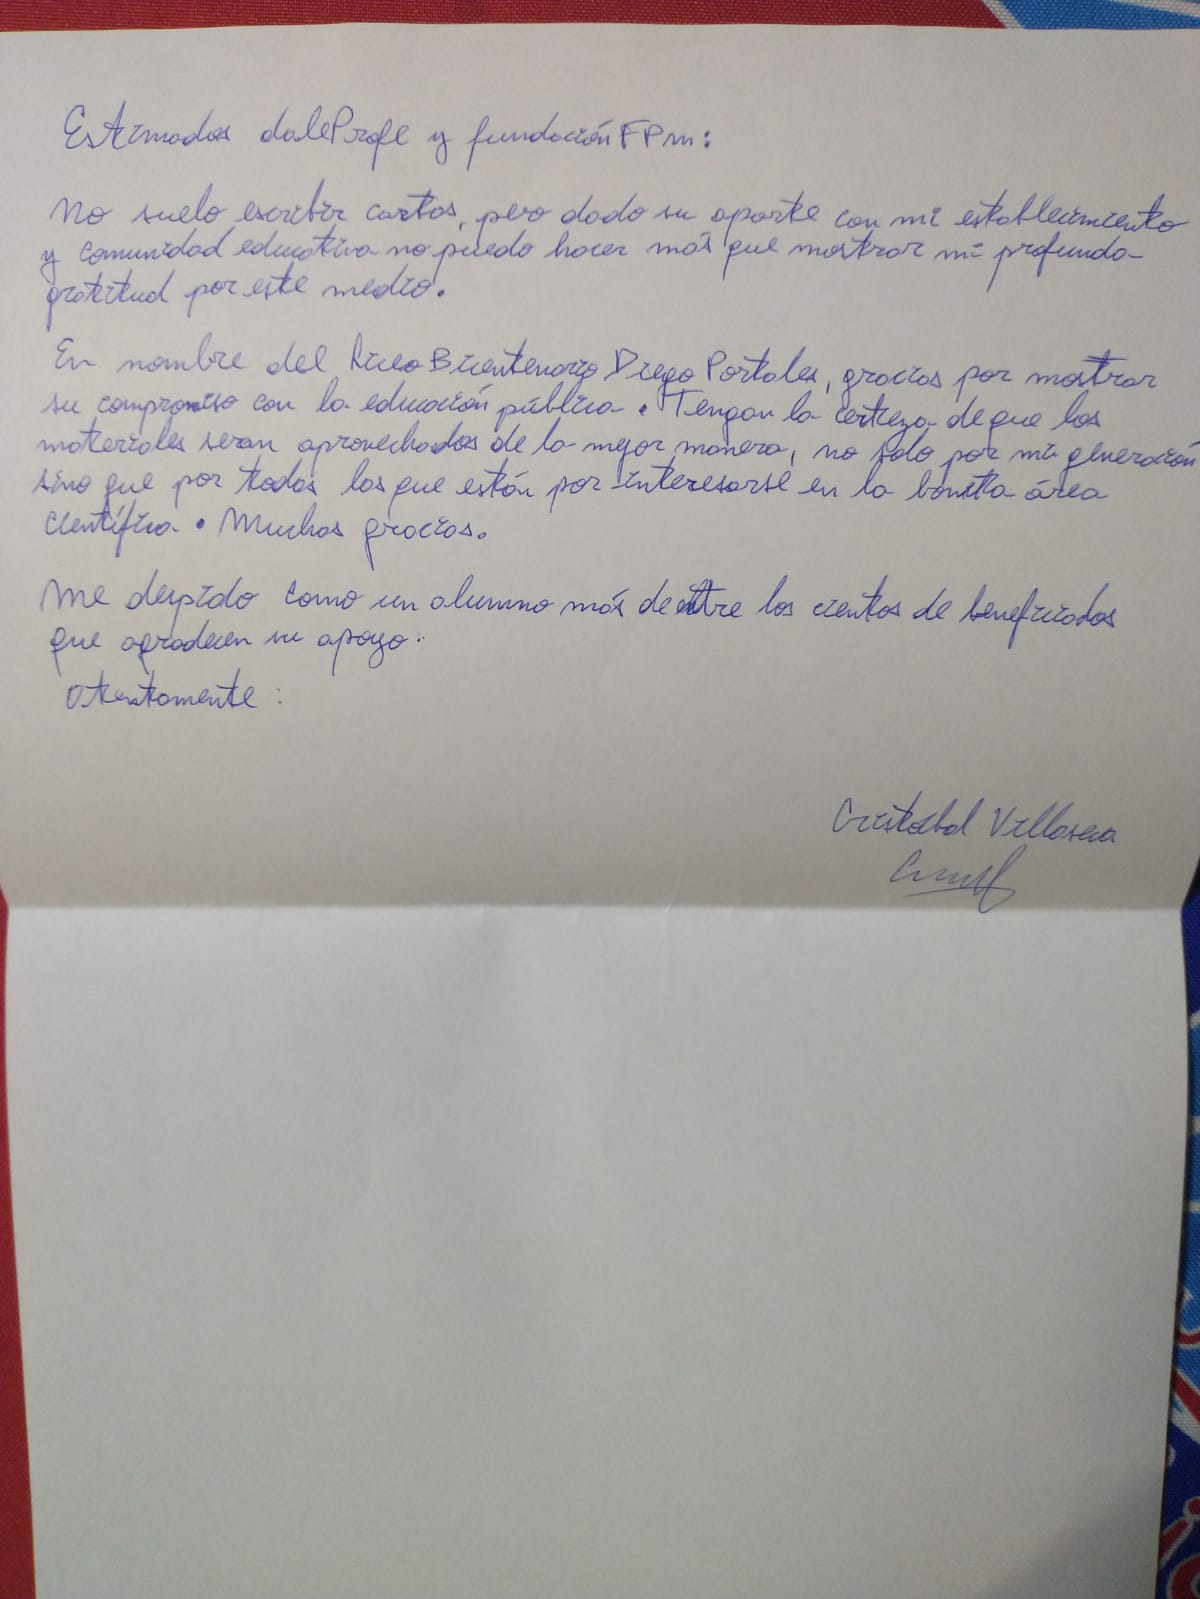 Estimados daleProfe y fundación FPM:
No suelo escribir cartas, pero dado su aporte con mi establecimiento
y comunidad educativa no puedo hacer más que mostrar mi profunda
gratitud por este medio.
En nombre del Liceo Bicentenario Diego Portales, gracias por mostrar
su compromiso con la educación pública. Tengan la certeza de que los
materiales seran aprovechados de la mejor manera, no solo por mi generación
sino que por todos los que están por interesarse en la bonita área
científica. Muchas gracias.
Me despido como un alumno más de entre los cientos de beneficiados
que agradecen su apoyo.
Atentamente:
Cristobal Villaseca